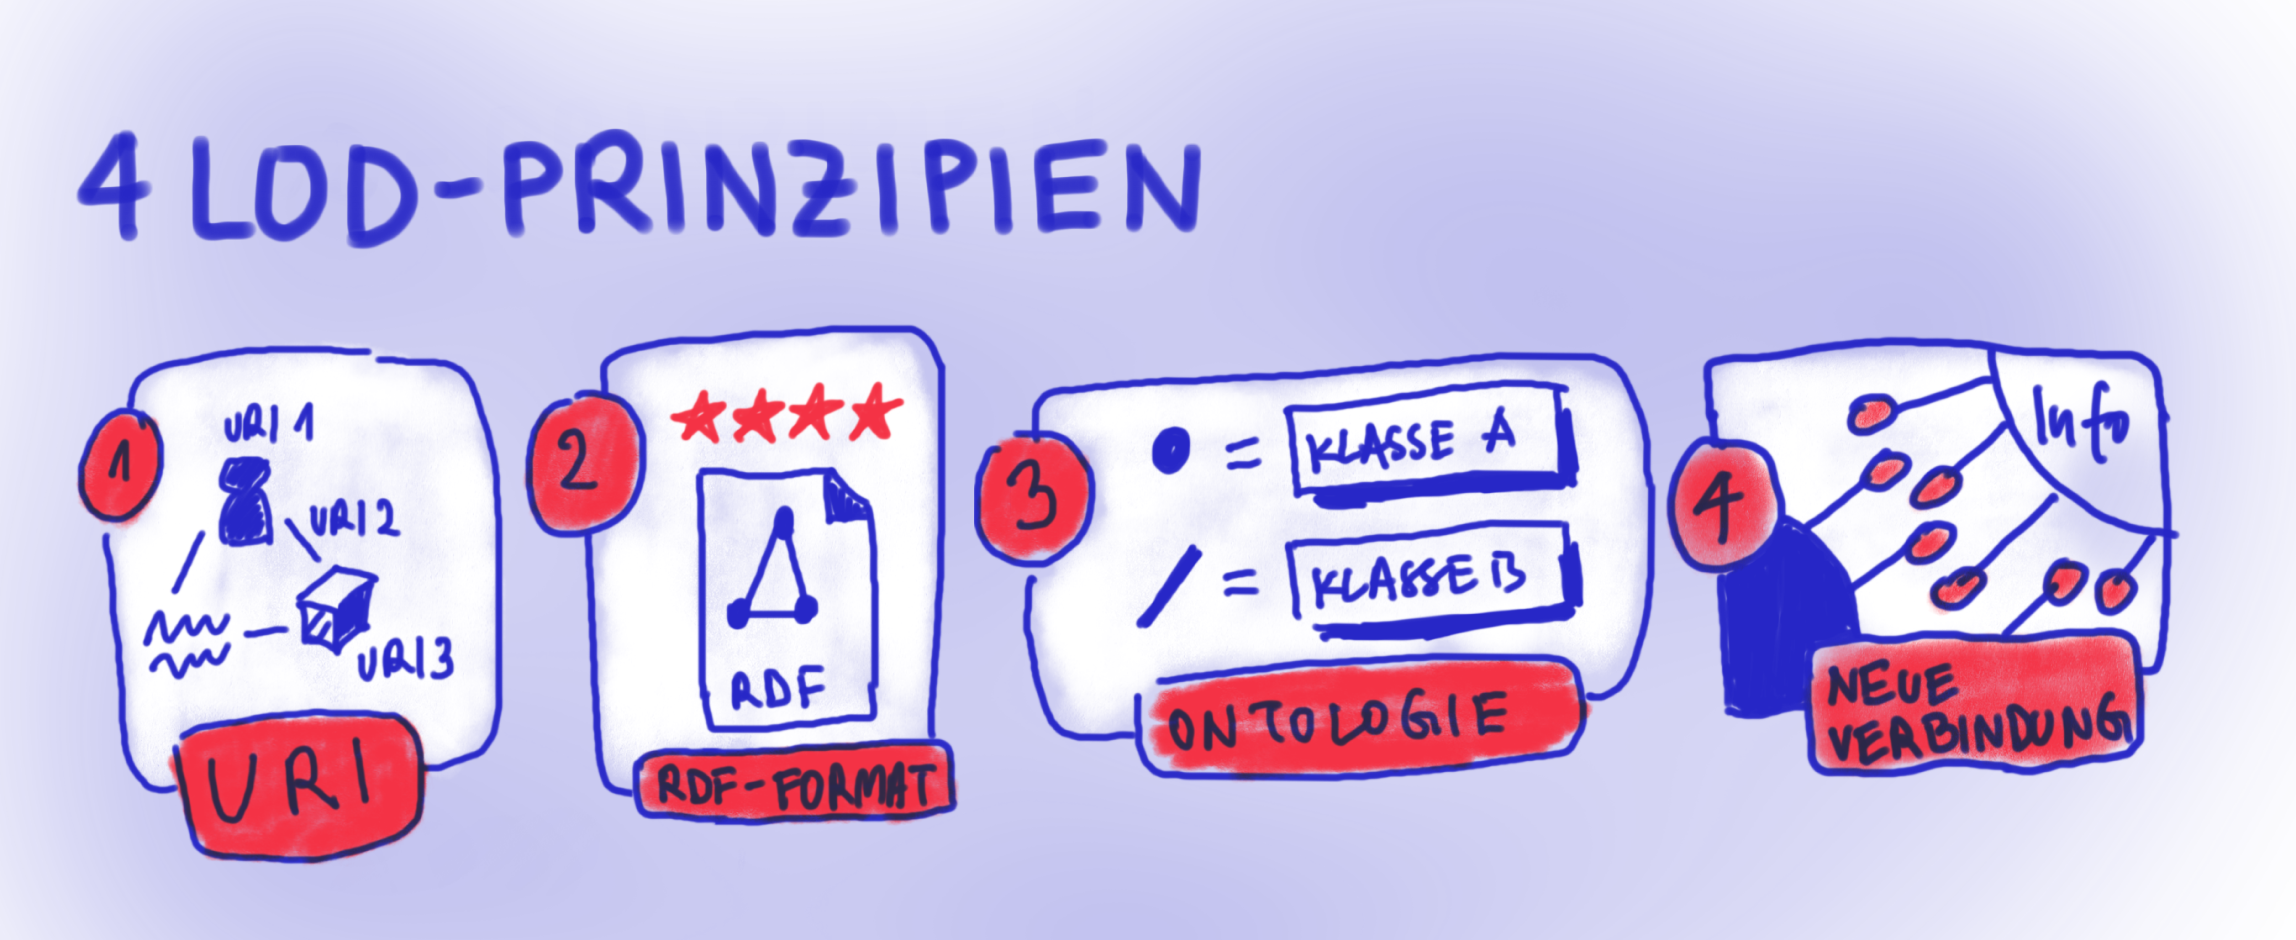 4 LOD-PRINZIPIEN
1
URI 1
URI2
URI3
URI
2
RDF
RDF-FORMAT
3
= KLASSE A
= KLASSE B
ONTOLOGIE
4
Info
NEUE
VERBINDUNG